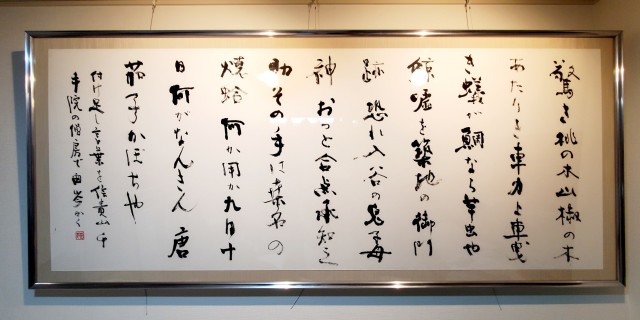 驚き桃の木山椒の木
あたりき車力よ車曳
き蟻が鯛なら芋虫や
鯨 嘘を築地の御門
跡 恐れ入谷の鬼子母
神 おっと合点承知之
助 その手は桑名の
焼蛤 何か用か九日十
日 何がなんきん 唐
茄子かぼちや
付け足し言葉を信貴山 千
手院の宿房で かく